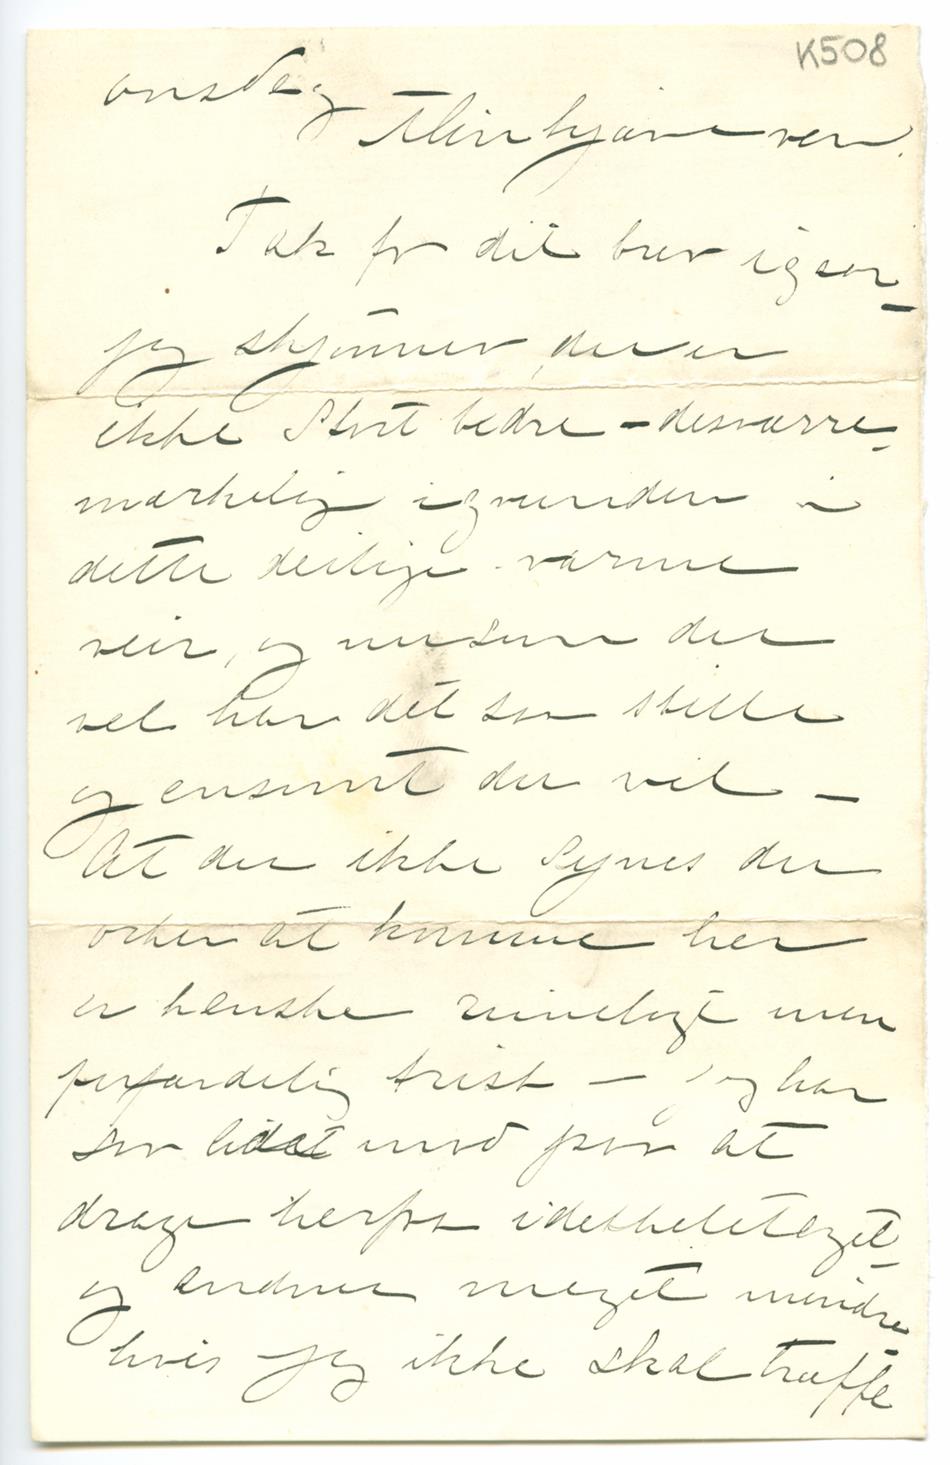 K508
onsdag
Min kjære ven.
Tak for dit brev igaar –
jeg skjønner, du er
ikke stort bedre – desværre –
mærkelig igrunden i
dette deilige varme
veir, og du
vel har det saa stille
og ensomt du vil –
At du ikke synes du
orker at komme her
er kanske rimeligt men
forfærdelig trist – jeg har
saa lidet mod paa at
drage herfra idethele taget –
og endnu meget mindre
hvis jeg ikke skal træffe